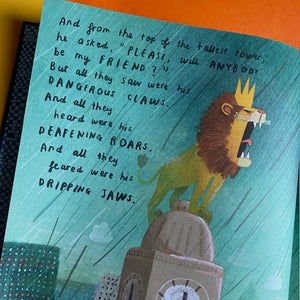 And from the top of the tallest tower,
he asked, "PLEASE will ANYBODY
be my FRIEND?"
But all they saw were his
DANGEROUS CLAWS.
And all they
heard were his
DEAFENING ROARS.
And all they
feared were his
DRIPPING JAWS.